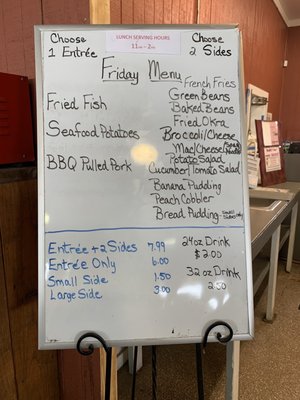 Choose
1 Entrée
LUNCH SERVING HOURS
11AM - 2PM
Choose
2 Sides
Friday Menu
Fried Fish
Seafood Potatoes
BBQ Pulled Pork
French Fries
Green Beans
Baked Beans
Fried Okra
Broccoli/Cheese
Mac/Cheese
Potato Salad
Cucumber/Tomato Salad
Banana Pudding
Peach Cobbler
Bread Pudding
Entrée + 2 Sides 7.99
Entrée Only 6.00
Small Side 1.50
Large Side 3.00
24oz Drink
$2.00
32oz Drink
2.50